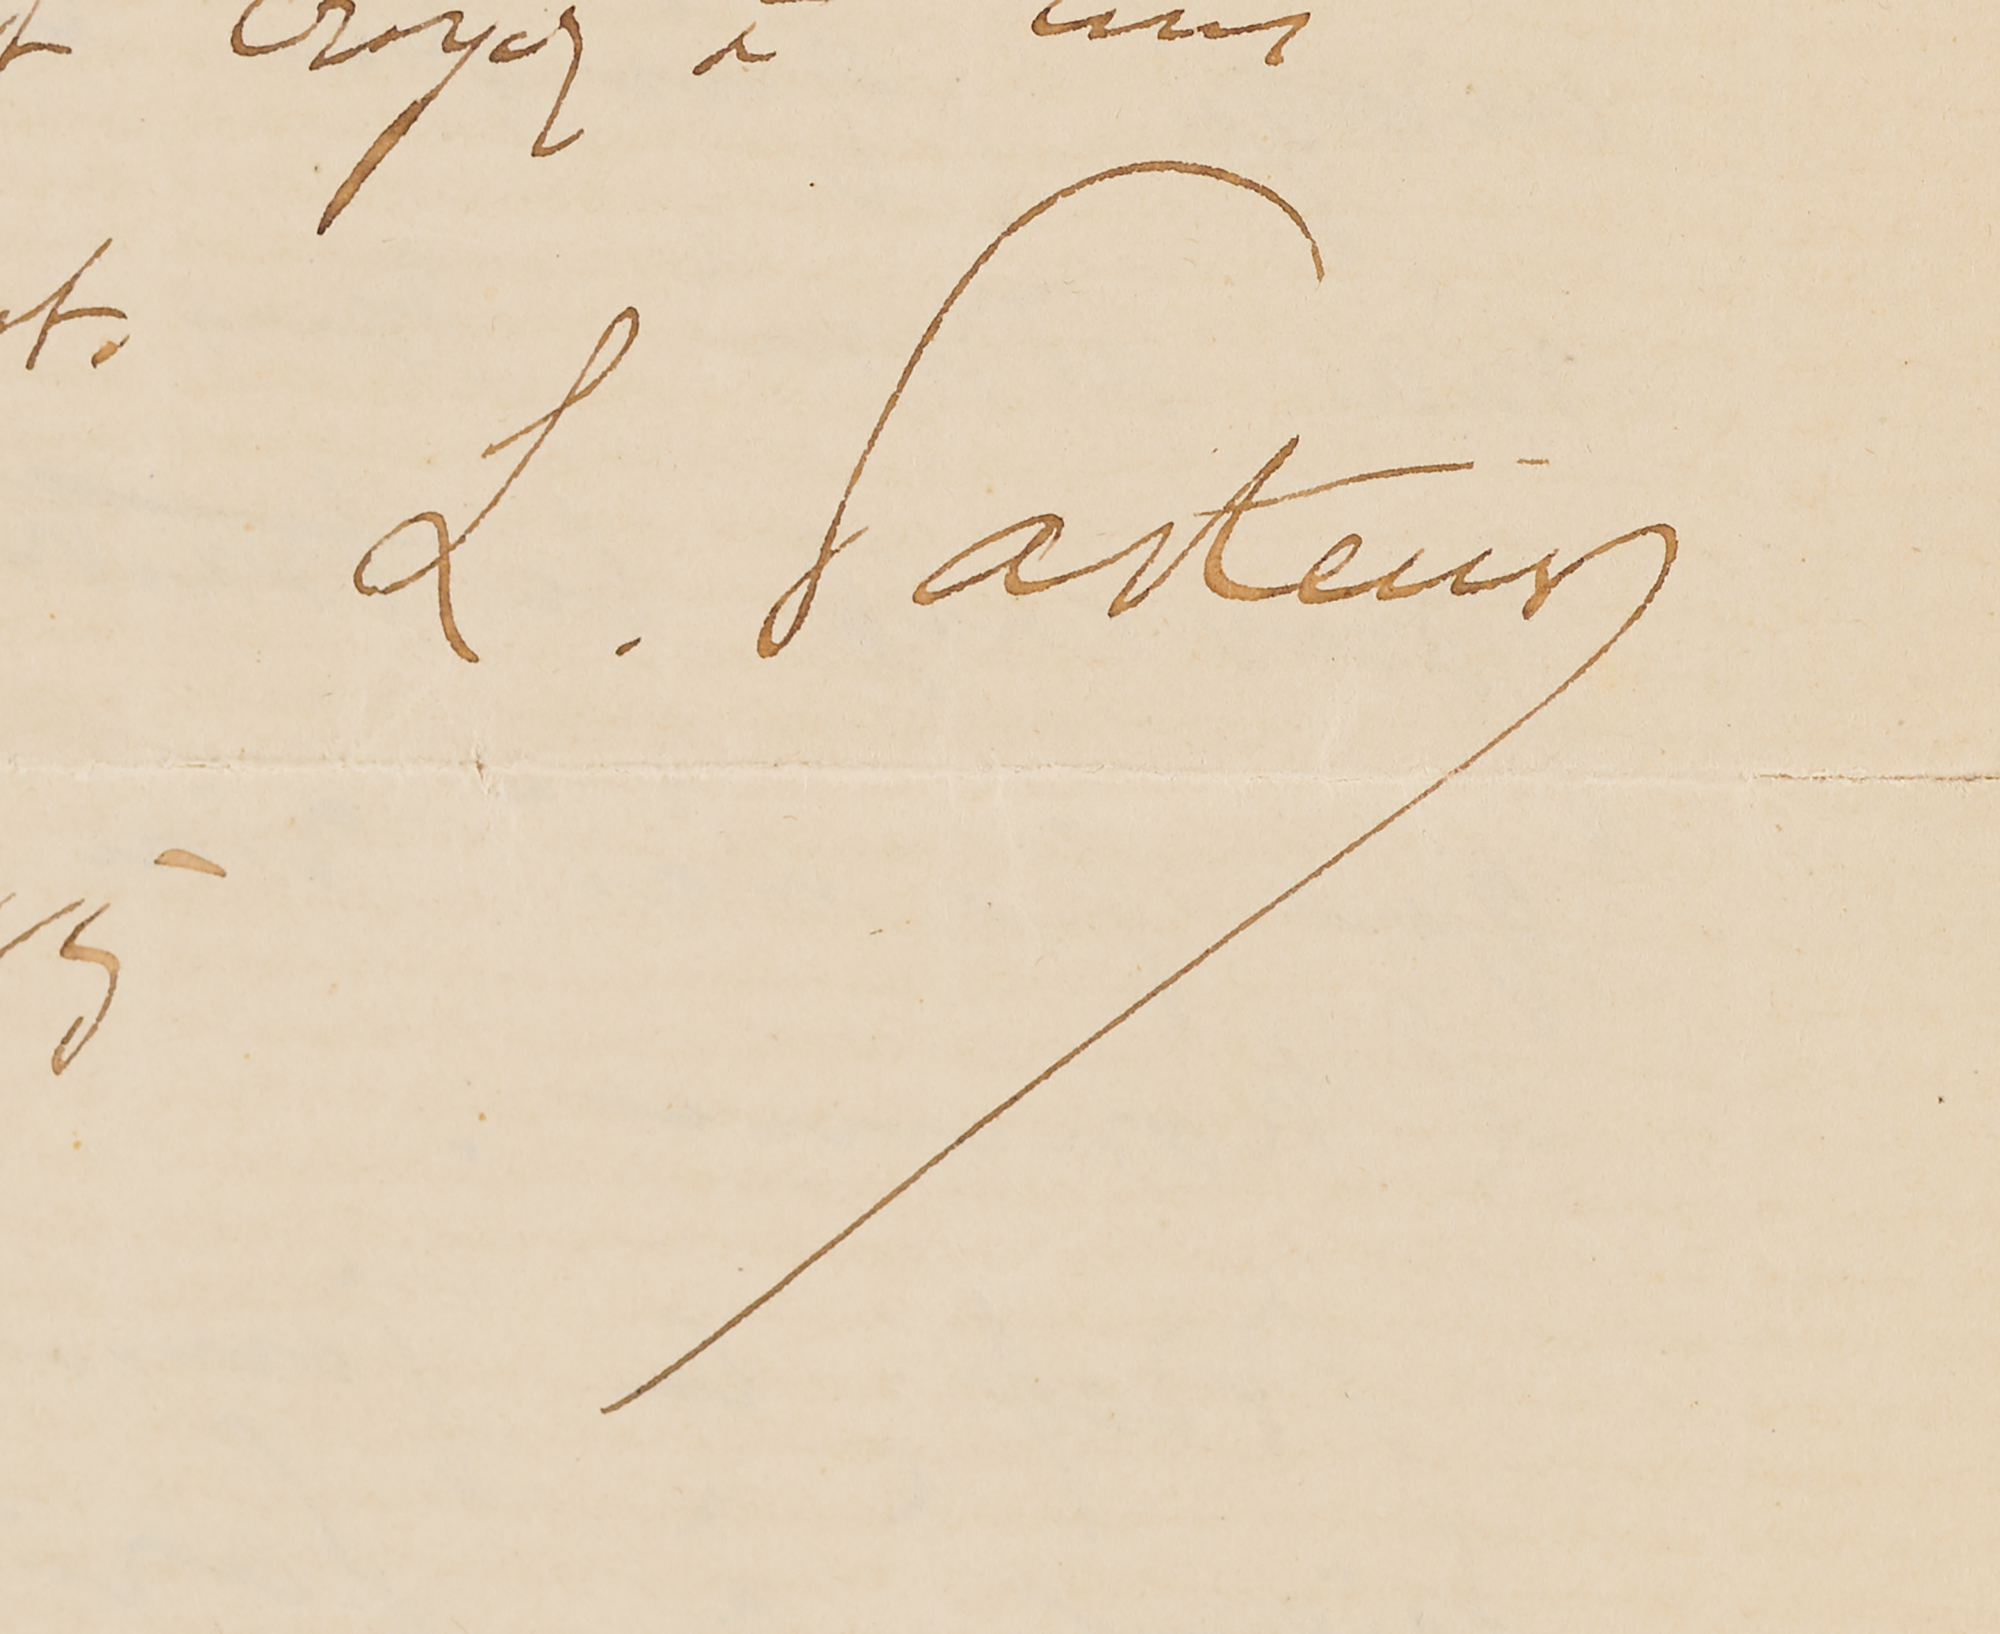 croyez à mes
L. Pasteur